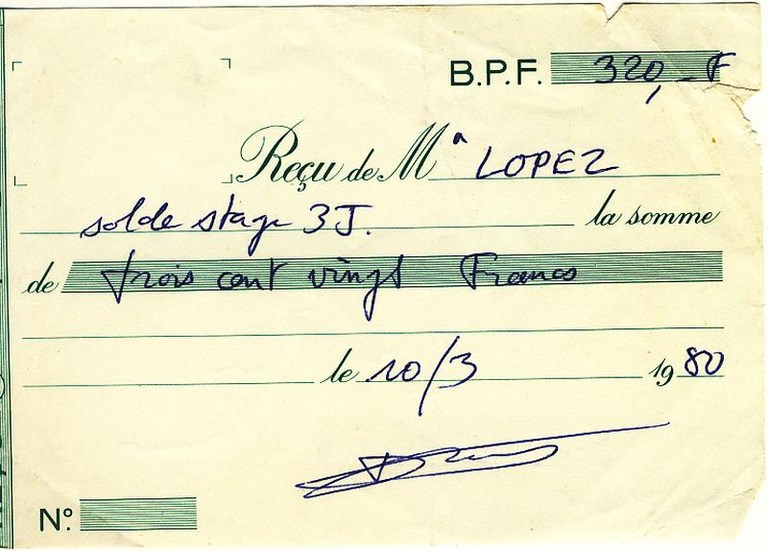 B.P.F. 320,-F
Reçu de Mª LOPEZ
solde stage 3J. la somme
de trois cent vingt Francs
le 10/3 1980
Nº.